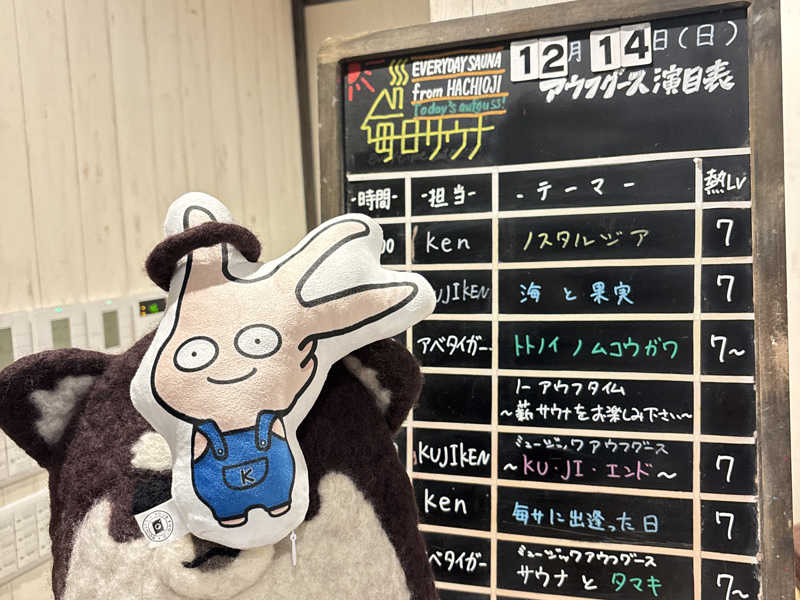 EVERYDAY SAUNA
from HACHIOJI
Today's aufguss!
毎日サウナ
12月14日(日)
アウフグース演目表
-時間- -担当- -テーマ- 熱Lv
ken ノスタルジア 7
KUJIKEN 海と果実 7
アベタイガー トトノイノムコウガワ 7~
ノーアウフタイム
~薪サウナをお楽しみ下さい~
KUJIKEN ミュージックアウフグース
~KU・JI・エンド~ 7
ken 毎サに出逢った日 7
アベタイガー ミュージックアウフグース
サウナとタマキ 7~
K